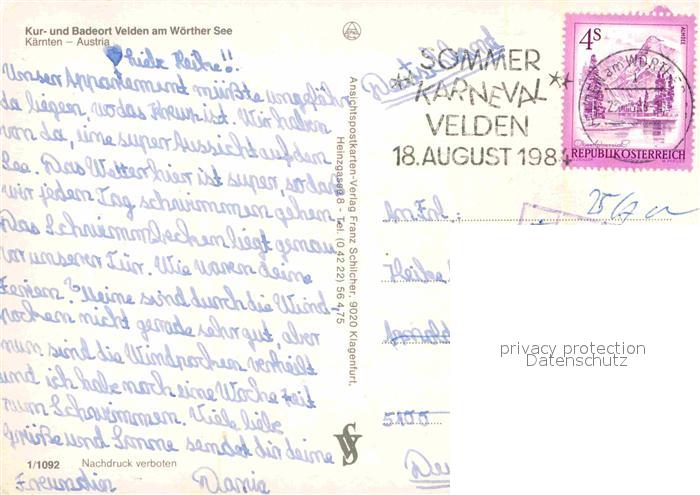 Kur- und Badeort Velden am Wörther See
Kärnten – Austria
Liebe Heike!!
Unser Appartement müßte ungefähr
da liegen, wo das Kreuz ist. Wir haben
von da, eine super Aussicht auf den
See. Das Wetter hier ist super, so daß
wir jeden Tag schwimmen gehen.
Das Schwimmbecken liegt genau
vor unserer Tür. Wie waren deine
Ferien? Meine sind durch die Wind-
pocken nicht gerade sehr gut, aber
nun sind die Windpocken verheilt
und ich habe noch eine Woche Zeit
zum Schwimmen. Viele liebe
Grüße und Sonne sendet dir deine
Freundin Dania
1/1092 Nachdruck verboten
Ansichtspostkarten-Verlag Franz Schilcher, 9020 Klagenfurt,
Heinzgasse 8 - Tel. (0 42 22) 56 4 75
Deutschland
SOMMER
KARNEVAL
VELDEN
18. AUGUST 1984
4S
REPUBLIK ÖSTERREICH
An Frl.:
Heike
5100
privacy protection
Datenschutz